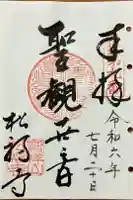 奉拝
令和六年
七月二十日
聖観世音
松福寺